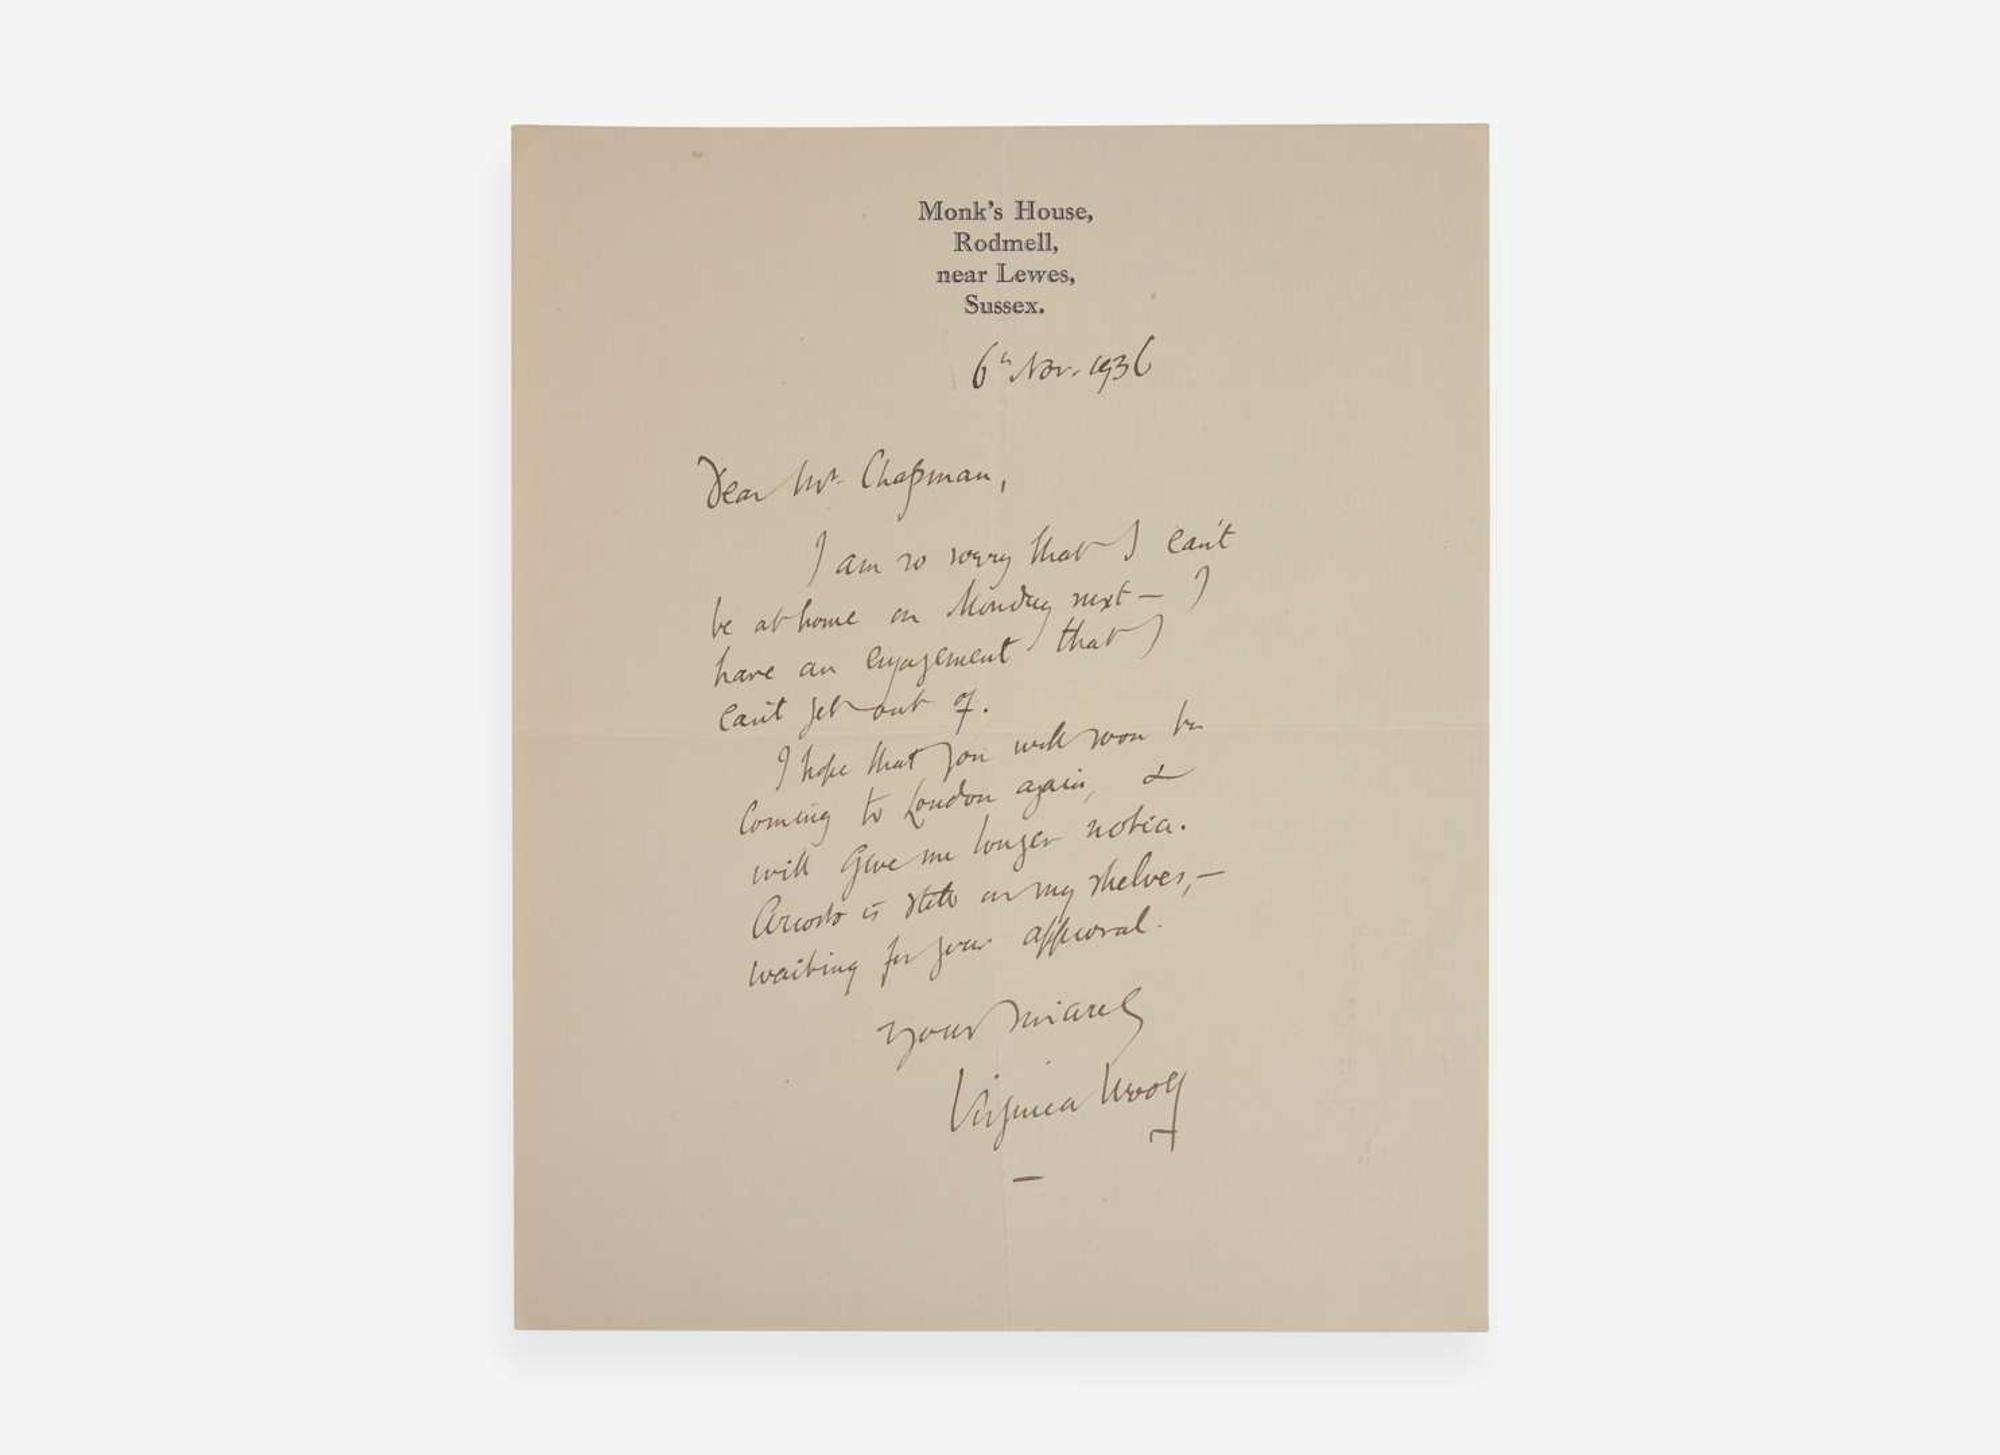 Monk's House,
Rodmell,
near Lewes,
Sussex.
6th Nov. 1936
Dear Mr. Chapman,
I am so sorry that I can't
be at home on Monday next — I
have an engagement that I
can't get out of.
I hope that you will soon be
coming to London again, &
will give me longer notice.
Ariosto is still on my shelves, —
waiting for your approval.
Yours sincerely
Virginia Woolf